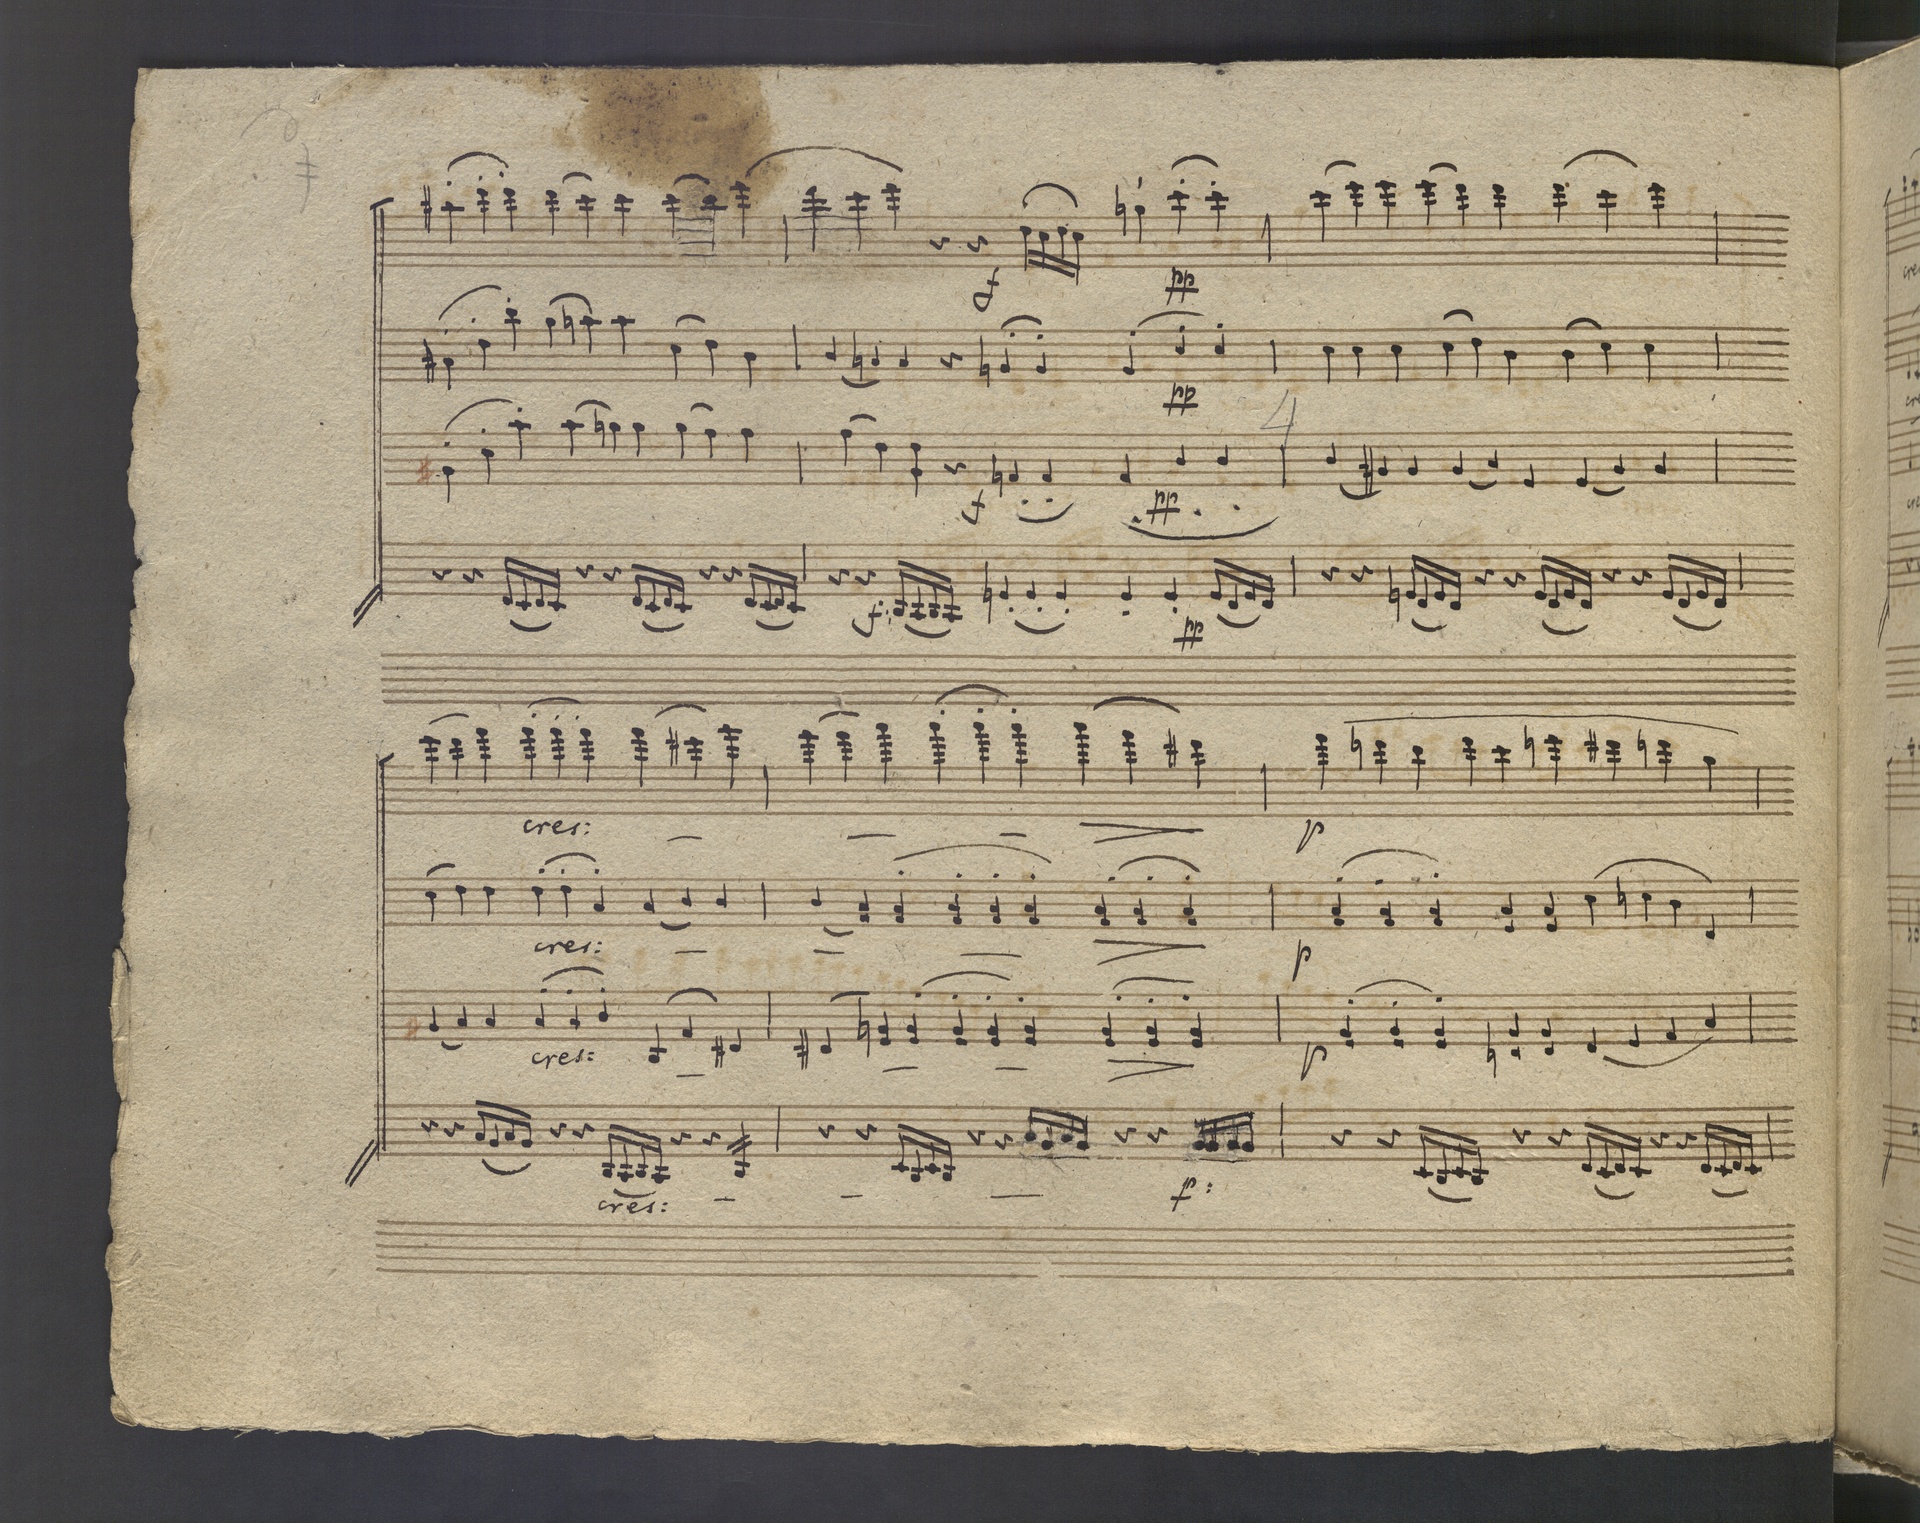 f pp
pp
4
f pp
f: pp
cres: p
cres: p
cres: p
cres: f: